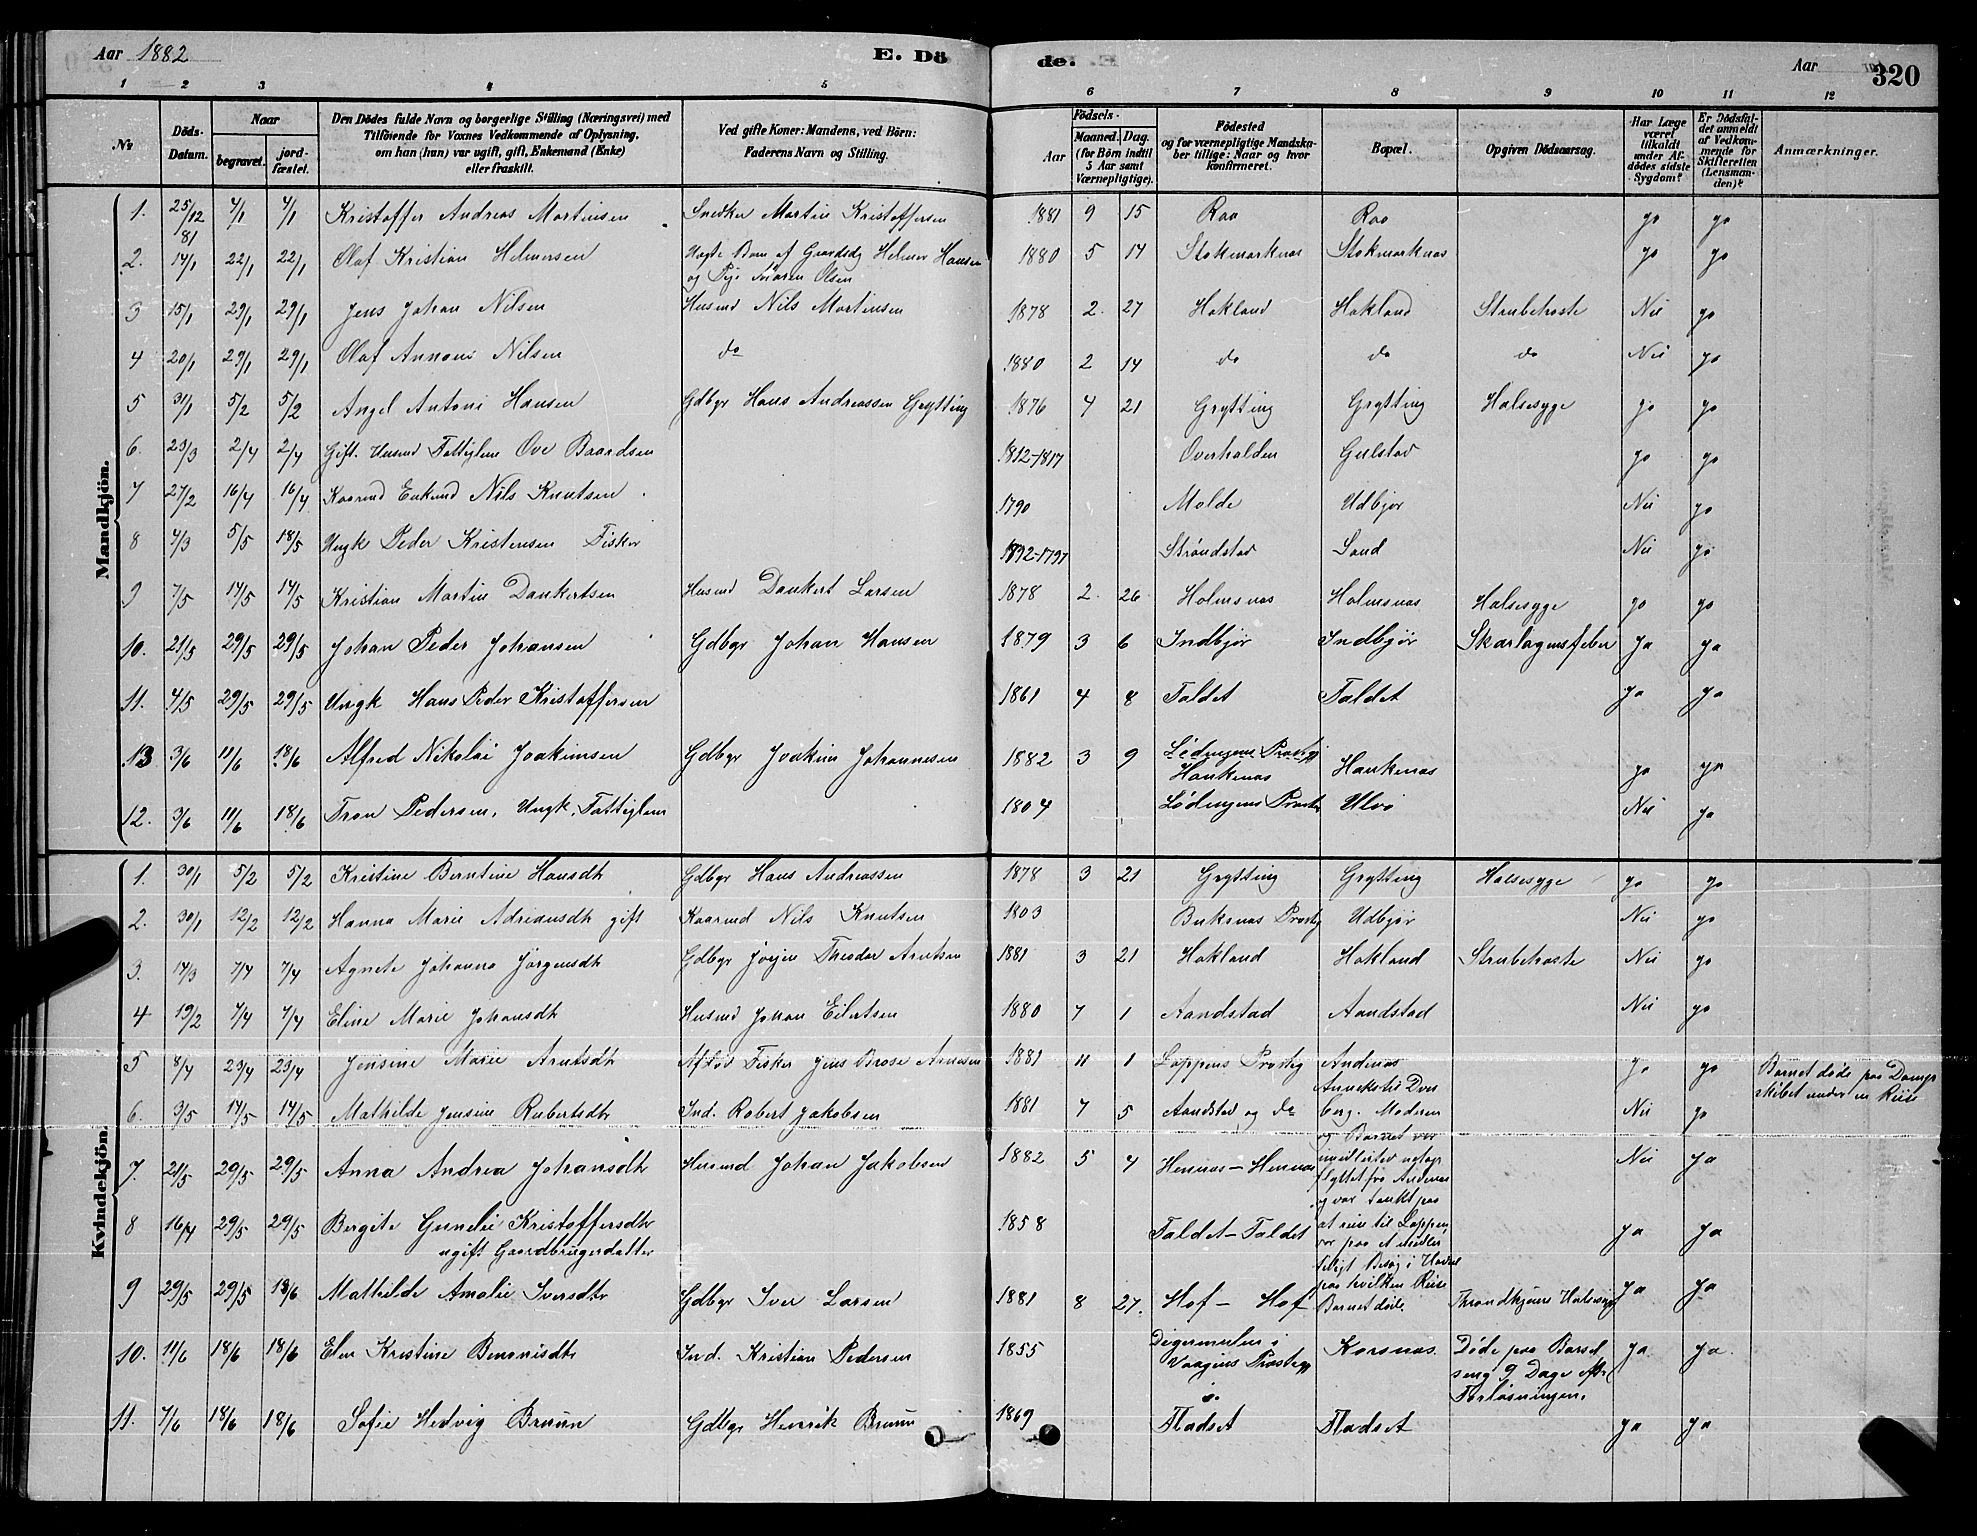 Aar 1882 E. Dö
de. Aar 320
1 2 3 4 5 6 7 8 9 10 11 12
№
Döds-Datum.
Naar
begravet.
jord-fæstet.
Den Dödes fulde Navn og borgerlige Stilling (Næringsvei) med
Tilföiende for Voxnes Vedkommende af Oplysning,
om han (hun) var ugift, gift, Enkemand (Enke)
eller fraskilt.
Ved gifte Koner: Mandens, ved Börn:
Faderens Navn og Stilling.
Födsels-
Aar
Maaned. Dag.
(for Börn indtil
5 Aar samt
Værnepligtige).
Födested
og for værnepligtige Mandska-
ber tillige: Naar og hvor
konfirmeret.
Bopæl.
Opgiven Dödsaarsag.
Har Læge
været
tilkaldt
under Af-
dödes sidste
Sygdom?
Er Dödsfal-
det anmeldt
af Vedkom-
mende for
Skifteretten
(Lensman-
den)?
Anmærkninger.
Mandkjön.
1. 25/12 81 4/1 4/1 Kristoffer Andreas Martinsen Snedker Martin Kristoffersen 1881 9 15 Raa Raa ja ja
2. 14/1 22/1 22/1 Olaf Kristian Helmersen Uægte Barn af Gaardsdg Helmer Hansen
og Pige Maren Olsen 1880 5 14 Stokmarknas Stokmarknas ja ja
3 15/1 29/1 29/1 Jens Johan Nilsen Husmd Nils Martinsen 1878 2. 27 Hokland Hokland Strubehoste Nei ja
4 20/1 29/1 29/1 Olaf Annani Nilsen do 1880 2 14 do do do Nei ja
5 31/1 5/2 5/2 Angel Antoni Hansen Gdbgr Hans Andreassen Grytting 1876 4 21 Grytting Grytting Halsesyge ja ja
6. 23/3 2/4 2/4 Gift. Husmd Fattiglem Ove Baardsen 1812-1817 Overhalden Gulstad ja ja
7 27/2 16/4 16/4 Kaarmd Enkemd Nils Knutsen 1790 Molde Udbjør Nei ja
8 4/3 5/5 18/5 Ungk Peder Kristensen Fisker 1792-1797 Strøndstad Sand Nei ja
9 7/5 14/5 14/5 Kristian Martin Dankertsen Husmd Dankert Larsen 1878 2. 26 Holmsnas Holmsnas Halsesyge ja ja
10. 21/5 29/5 29/5 Johan Peder Johansen Gdbgr Johan Hansen 1879 3 6 Indbjør Indbjør Skarlagensfeber Ja ja
11. 4/5 29/5 29/5 Ungk Hans Peder Kristoffersen 1861 4 8 Faldet Faldet ja ja
13 3/6 11/6 18/6 Alfred Nikolai Joakimsen Gdbgr Joakim Johannesen 1882 3 9 Lødingens Prstgj
Haukenas Haukenas ja ja
12. 3/6 11/6 18/6 Tron Pedersen, Ungk. Fattiglem 1804 Lødingens Prstgj Ulvø Nei ja
Kvindekjön.
1. 30/1 5/2 5/2 Kristine Berntine Hansdtr Gdbgr Hans Andreassen 1878 3 21 Grytting Grytting Halsesyge ja ja
2. 30/1 12/2 12/2 Hanna Marie Adriansdtr gift Kaarmd Nils Knutsen 1803 Buksnas Prstgj Udbjør Nei ja
3. 14/3 7/4 7/4 Agnete Johanna Jørgensdtr Gdbgr Jørgen Theodor Arntsen 1881 3 21 Hokland Hokland Strubehoste Nei ja
4 19/2 7/4 7/4 Eline Marie Johansdtr Husmd Johan Eilertsen 1880 7 1 Aandstad Aandstad Nei ja
5 8/4 23/4 23/4 Jensine Marie Arntsdtr Afdød Fisker Jens Brose Arnesen 1881 11 1 Loppens Prstgj Andenas ja ja Barnet døde paa Damp
skibet under en Reise
6. 3/5 14/5 14/5 Mathilde Jensine Robertsdtr Ind. Robert Jakobsen 1881 7 5 Aandstad og do Nei ja
Annekstis Den
berg. Moderen
og Barnet var
imidlertid
flyttet fra Andenas
og var tænkt paa
at reise til Loppen,
var paa et midler
tidigt Besøg i Hadsel
paa hvilken Reise
Barnet døde
7. 21/5 29/5 29/5 Anna Andrea Johansdtr Husmd Johan Jakobsen 1882 5 4 Hennas - Hennas Nei Ja
8 16/4 29/5 29/5 Bergite Gunelie Kristoffersdtr
ugift Gaardbrugerdatter 1858 Faldet - Faldet Ja Ja
9 29/5 29/5 18/6 Mathilde Amalie Iversdtr Gdbgr Iver Larsen 1881 8 27. Hof - Hof Throndhjems Halsesyge Ja Ja
10. 11/6 18/6 18/6 Elen Kristine Benonisdtr Ind. Kristian Pedersen 1855 Digermulen i
Vaagens Prstgj Korsnas. Døde paa Barsel
seng 9 Dage efter
Forløsningen. Ja Ja.
11. 7/6 18/6 18/6 Sofie Hedvig Bruun Gdbgr Henrik Bruun 1869 Fladset Fladset Ja Ja